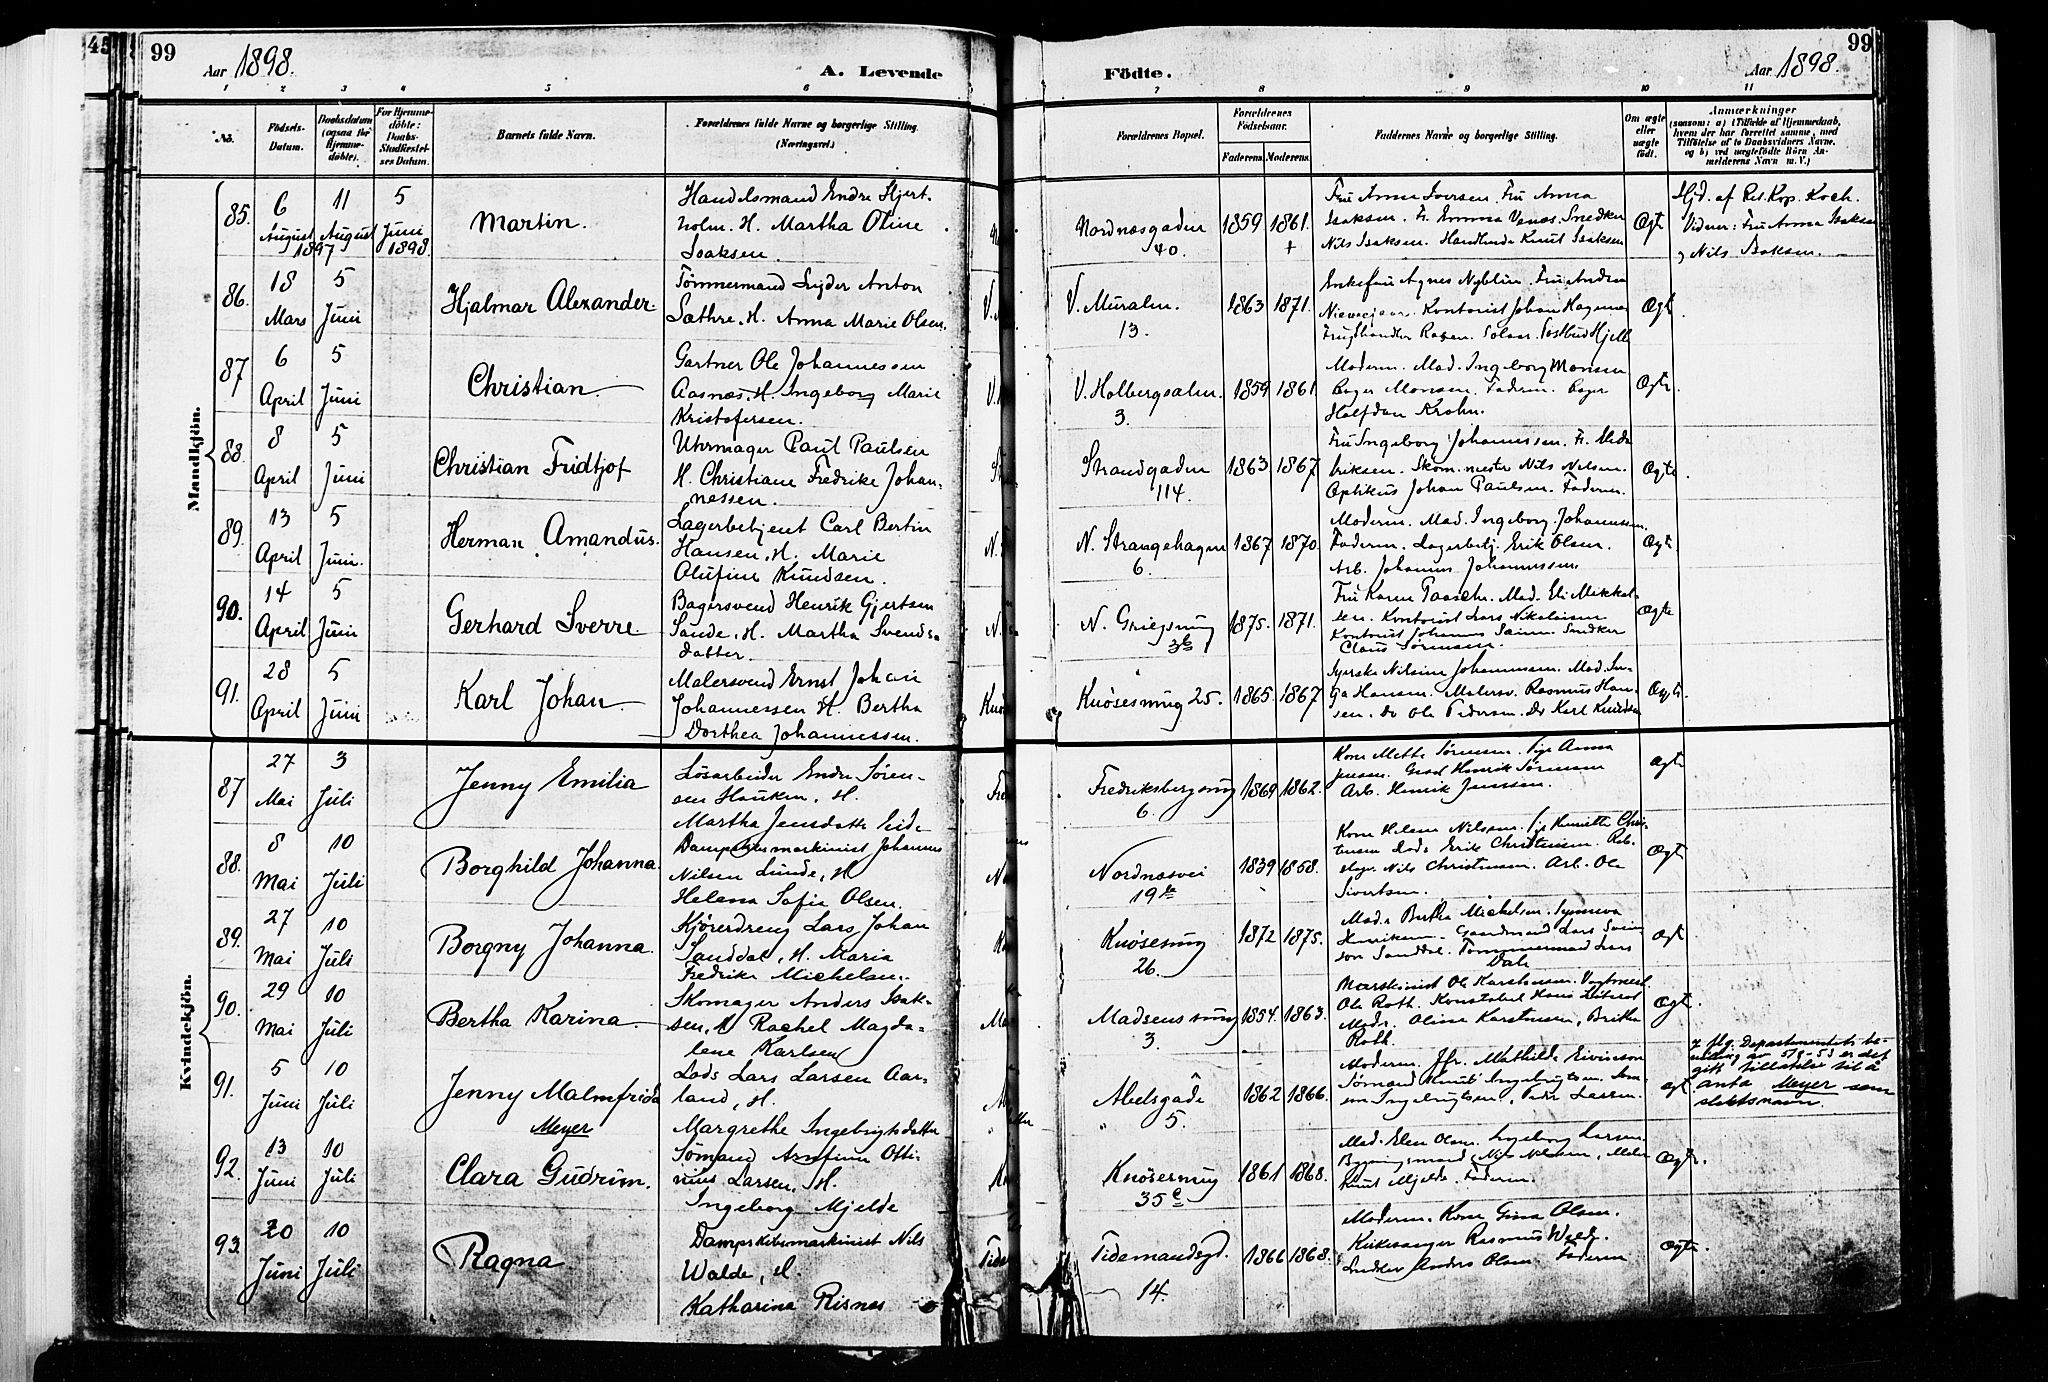 45
99
Aar 1898.
A. Levende
Födte.
Aar 1898.
99
1 2 3 4 5 6 7 8 9 10 11
No.
Födsels-
Datum.
Daabsdatum
(ogsaa for
Hjemme-
döbte).
For Hjemme-
döbte:
Daabs-
Stadfæstel-
ses Datum.
Barnets fulde Navn.
Forældrenes fulde Navne og borgerlige Stilling.
(Næringsvei.)
Forældrenes Bopæl.
Forældrenes
Födselsaar.
Faderens. Moderens.
Faddernes Navne og borgerlige Stilling.
Om ægte
eller
uægte
födt.
Anmærkninger
(saasom: a) i Tilfælde af Hjemmedaab,
hvem der har forrettet samme, med
Tilföielse af to Daabsvidners Navne.
og b) ved uægtefödte Börn An-
melderens Navn m. V.)
Mandkjön.
85. 6 August 1897 11 August 5 Juni 1898
Martin.
Handelsmand Endre Hjert-
holm. H. Martha Oline
Isaksen.
Nordnæsgaden
40.
1859 1861 +
Fru Anna Iversen. Fru Anna
Isaksen. Fr. Emma Snedker
Nils Isaksen. Knut Isaksen
Ægte
Hjd. af Res. Kap. Koch.
Vidner: Fru Anna Isaksen
, Nils Isaksen.
86. 18 Mars 5 Juni
Hjalmar Alexander.
Tömmermand Lyder Anton
Sæthre. H. Anna Marie Olsen.
V. Muralm.
13.
1863 1871.
Enkefru Agnes Nyblin. Fru Andrea
Kontorist Johan
Ægt.
87 6 April 5 Juni
Christian.
Gartner Ole Johannessen
Aasnæs. H. Ingeborg Marie
Kristofersen.
V. Holbergsalm.
3.
1859 1861
Moderen. Mad. Ingeborg Monsen
Bager Monsen. Faderen. Bager
Halfdan Krohn.
Ægte.
88. 8 April 5 Juni
Christian Fridtjof
Uhrmager Paul Paulsen
H. Christiane Fredrike Johan-
nessen.
Strandgaden
114.
1863 1867
Fru Ingeborg Johannssen. Fr.
Skom.mester Nils Nilsen.
Optikus Johan Paulsen. Faderen.
Ægte.
89. 13 April 5 Juni.
Herman Amandus.
Lagerbetjent Carl Bertin
Hansen. H. Marie
Olufine Knudsen.
N. Strangehagen
6.
1867 1870.
Moderen. Mad. Ingeborg Johannssen.
Faderen. Lagerbetj. Erik Olsen.
Arb. Johannes Johannssen.
Ægt.
90. 14 April 5 Juni
Gerhard Sverre
Bagersvend Henrik Gjertsen
Sande. H. Martha Svends-
datter.
N. Griegsmug
3b
1875. 1871.
Fru Karen Paasche. Mad. Eli Mikkel-
sen. Kontorist Lars Nikolaisen
Kontorist Johannes Snedker
Claus Sörensen.
Ægte
91. 28 April 5 Juni
Karl Johan.
Malersvend Ernst Johan
Johannessen H. Bertha
Dorthea Johannessen.
Knösesmug 25.
1865 1867
Nilsine Johannessen. Mad. In-
ga Hansen. Malersv. Rasmus Han-
sen. Do Ole Pedersen. Do Karl Knudsen
Ægte.
Kvindekjön.
87 27 Mai 3 Juli
Jenny Emilia
Lösarbeider Endre Sören-
sen Hauken. H.
Martha Jensdatter Eide
Fredriksbergsmug
6.
1869 1862.
Kone Mette Sörensen. Pige Anna
Jensen. Henrik Sörensen
Arb. Henrik Jenssen.
Ægt
88. 8 Mai 10 Juli
Borghild Johanna.
Dampskibsmaskinist Johannes
Nilsen Lunde, H
Helena Sofie Olsen.
Nordnæsvei
19
1839 1858.
Kone Helene Nilsen. Pige Henriette Chri-
stensen Lods Erik Christensen.
Nils Christensen. Arb. Ole
Sivertsen.
Ægt
89. 27 Mai 10 Juli
Borgny Johanna.
Kjörerdreng Lars Johan
Sanddal, H. Maria
Fredrike Michelsen.
Knösesmug
26.
1872 1875.
Mad. Bertha Michelsen. Synneva
Henriksen. Gaardmand Lars
Sanddal. Tömmermand Lars
Dale
Ægt
90. 29 Mai 10 Juli
Bertha Karina.
Skomager Anders Isak-
sen, H Rachel Magda-
lene Karlsen
Madsens smug
3.
1854. 1863.
Maskinist Ole Karstensen.
Ole Roth. Konstabel Hans
Madr. Oline Karstensen, Britha
Roth.
Ægt.
91. 5 Juni 10 Juli
Jenny Malmfrida
Meyer
Lods Lars Larsen Aar-
land, H.
Margrethe Ingebrigtsdatter
Abelsgade
5.
1862 1866.
Moderen. Jfr. Mathilde
Sömand Knut Ingebrigtsen.
Ingebrigtsen, Peder Larsen.
Ægt
I flg. Departementets be-
villing av 5/9-53 er det
gitt tillatelse til å
anta Meyer som
slektsnavn.
92. 13 Juni 10 Juli
Clara Gudrun.
Sömand Arntinn Otti-
nius Larsen, H.
Ingeborg Mjelde
Knösesmug
35c
1861 1868.
Mad. Elen Olsen. Ingeborg Larsen
Nils Nilsen, Maler
Knut Mjelde. Faderen.
Ægt.
93. 20 Juni 10 Juli
Ragna
Dampskibsmaskinist Nils
Walde, H.
Katharina Risnes
Tidemandsgd.
14.
1866 1868.
Moderen. Kone Gina Olsen.
Kirkesanger Rasmus Walde.
Snedker Anders Olsen. Faderen
Ægte.